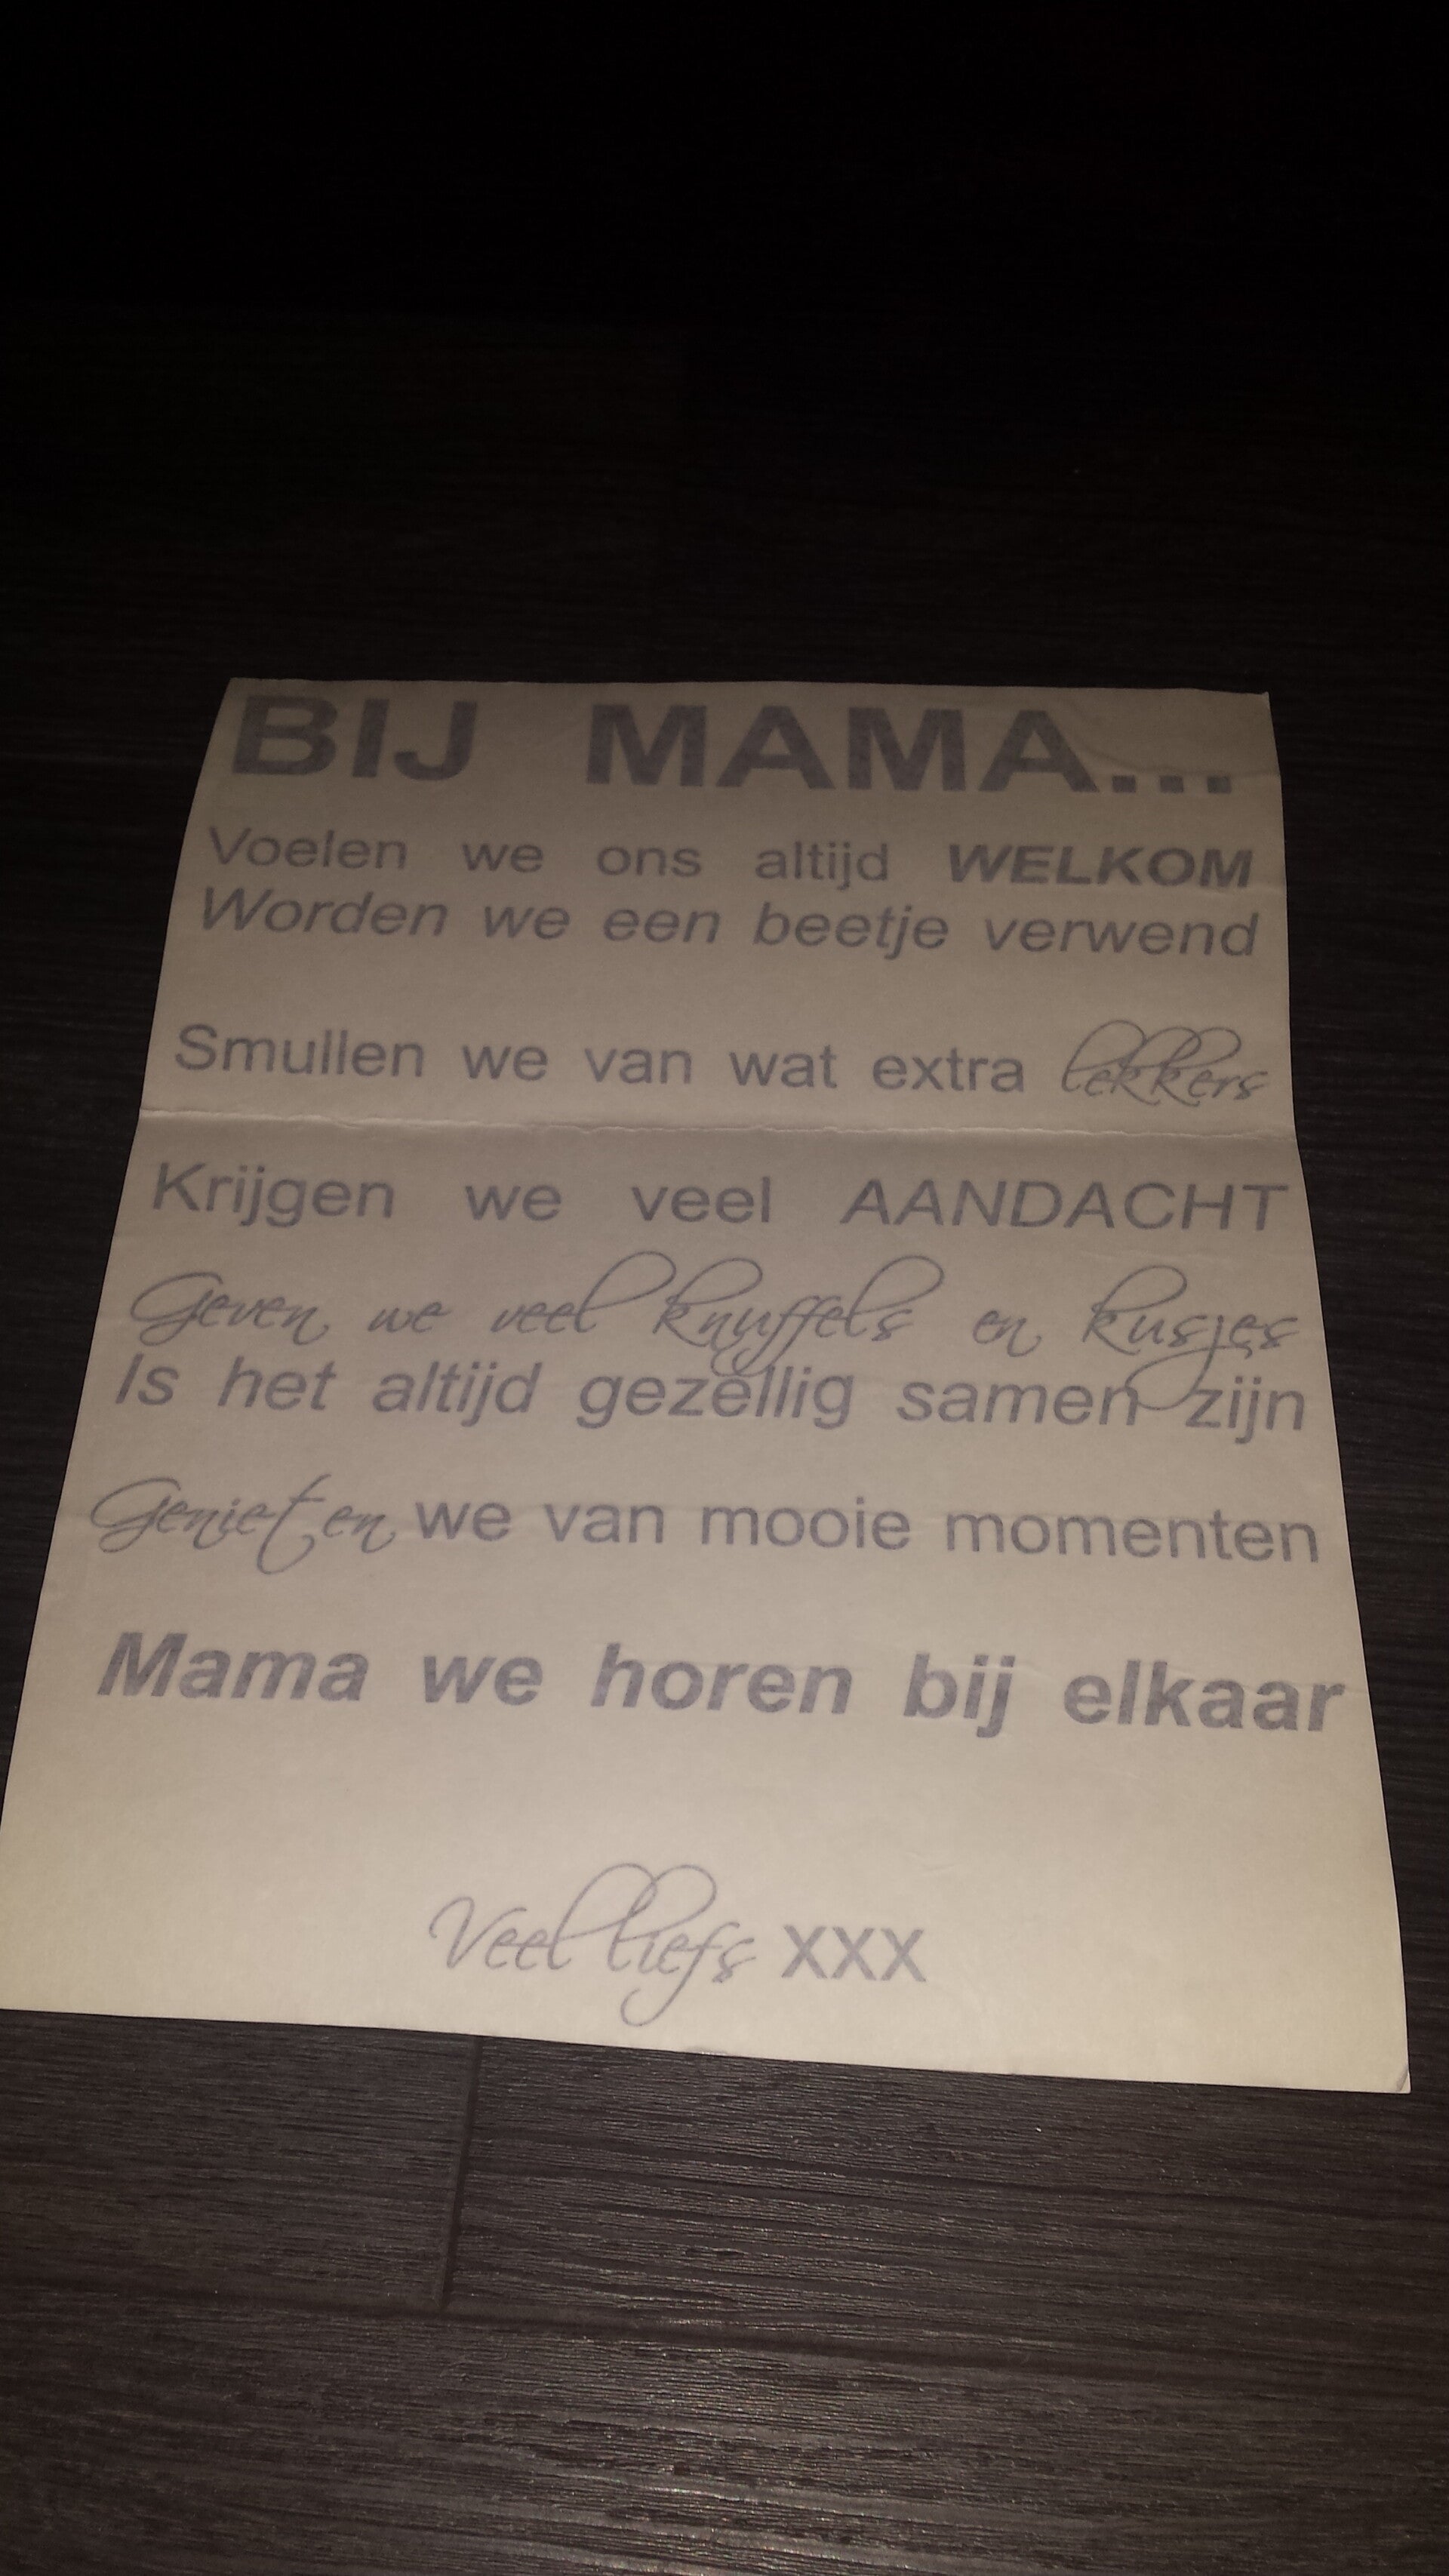 BIJ MAMA...
Voelen we ons altijd WELKOM
Worden we een beetje verwend
Smullen we van wat extra lekkers
Krijgen we veel AANDACHT
Geven we veel knuffels en kusjes
Is het altijd gezellig samen zijn
Genieten we van mooie momenten
Mama we horen bij elkaar
Veel liefs XXX